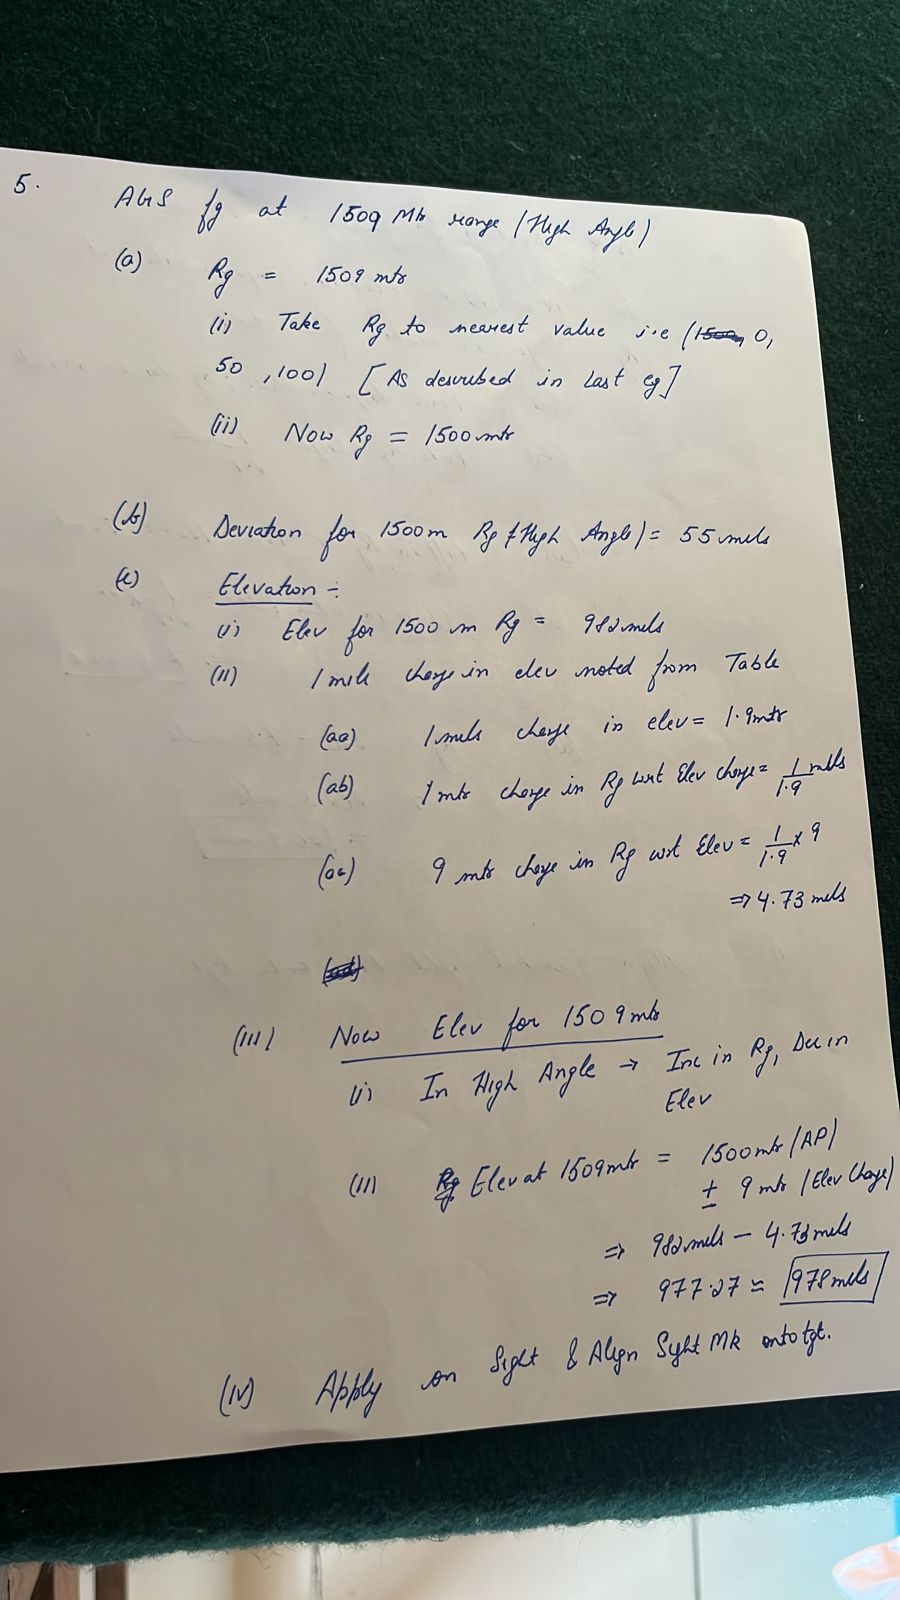 5. AGS fg at 1509 Mtr range (High Angle)
(a) Rg = 1509 mtr
(i) Take Rg to nearest value i.e (1500, 0,
50, 100) [As described in last eg]
(ii) Now Rg = 1500 mtr
(b) Deviation for 1500m Rg (High Angle) = 55 mels
(c) Elevation :-
(i) Elev for 1500 m Rg = 982 mels
(ii) 1 mils change in elev noted from Table
(aa) 1 mels change in elev = 1.9 mtr
(ab) 1 mtr change in Rg wrt Elev change = 1/1.9 mels
(ac) 9 mtr change in Rg wrt Elev = 1/1.9 x 9
⇒ 4.73 mels
(ad)
(III) Now Elev for 1509 mtr
(i) In High Angle → Inc in Rg, Dec in
Elev
(II) Rg Elev at 1509 mtr = 1500 mtr (AP)
± 9 mtr (Elev Change)
⇒ 982 mels - 4.73 mels
⇒ 977.27 ≈ 978 mels
(IV) Apply on Sight & Align Syht Mk onto tgt.